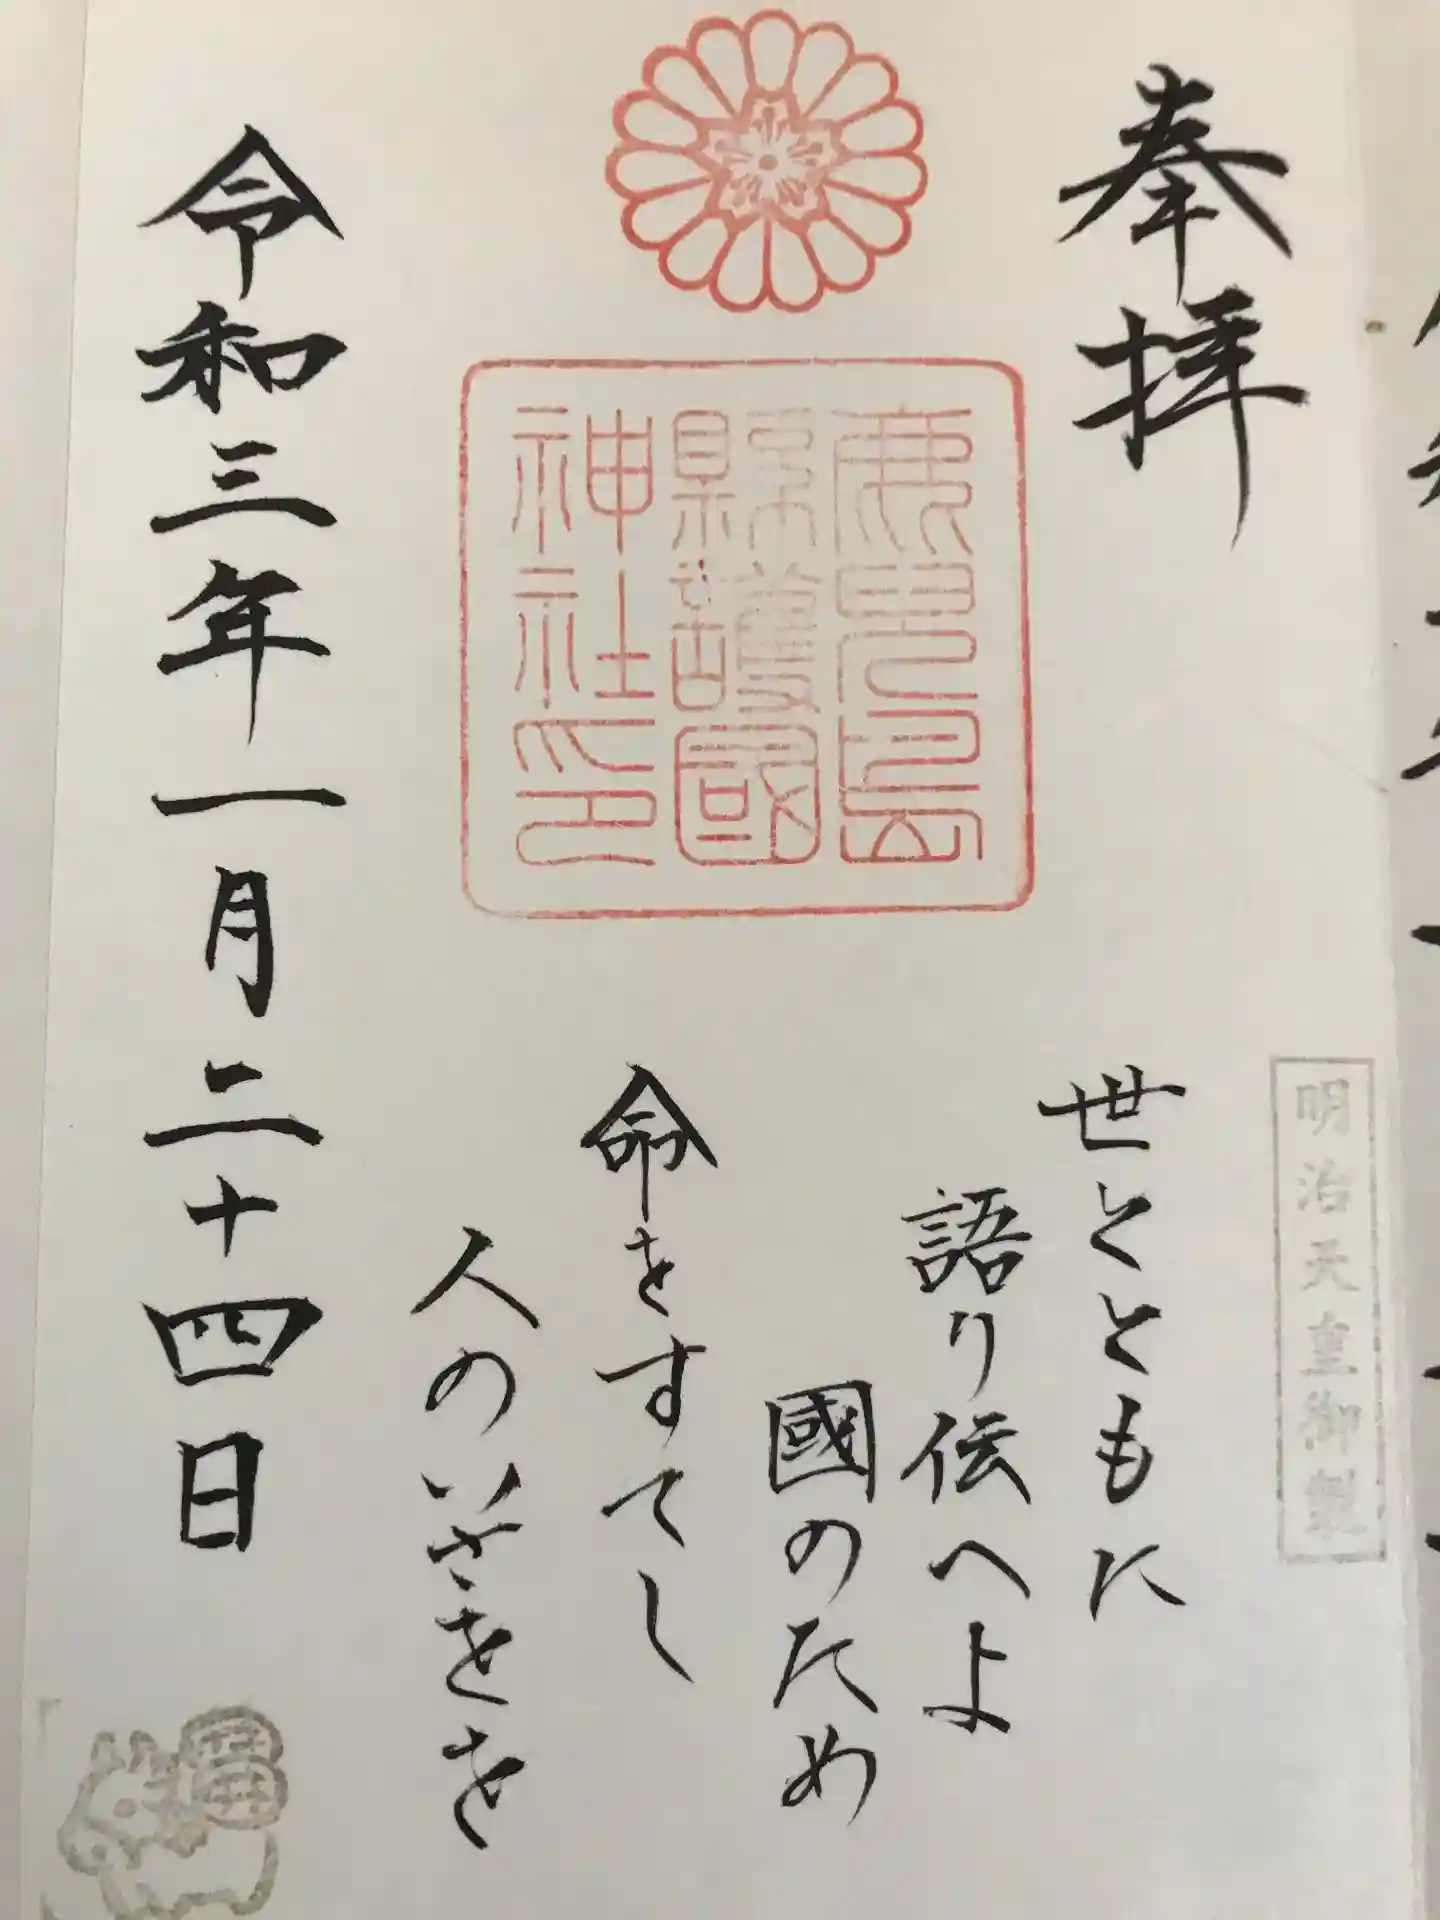 奉拝
鹿児島
縣護國
神社印
明治天皇御製
世とともに
語り伝へよ
國のため
命をすてし
人のいさをを
令和三年一月二十四日